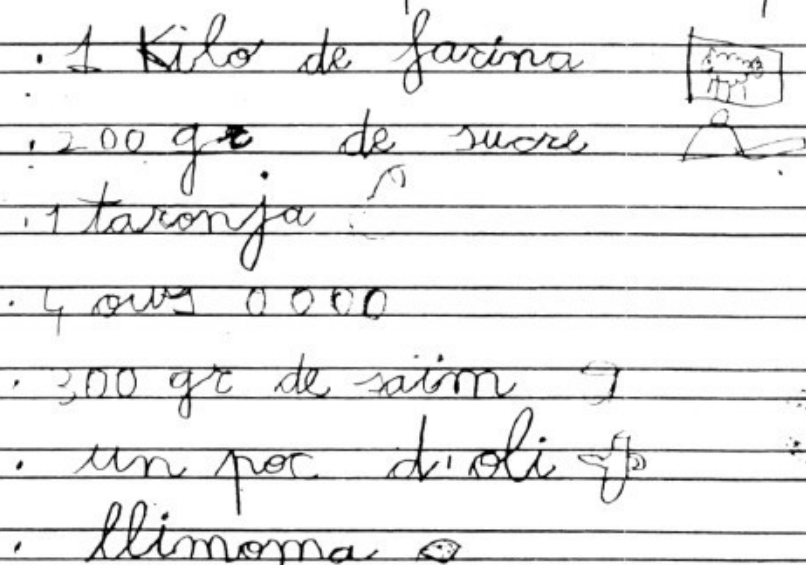 · 1 Kilo de farina
· 200 gr de sucre
· 1 taronja
· 4 ous 0000
· 300 gr de saïm
· un poc d'oli
· llimoma